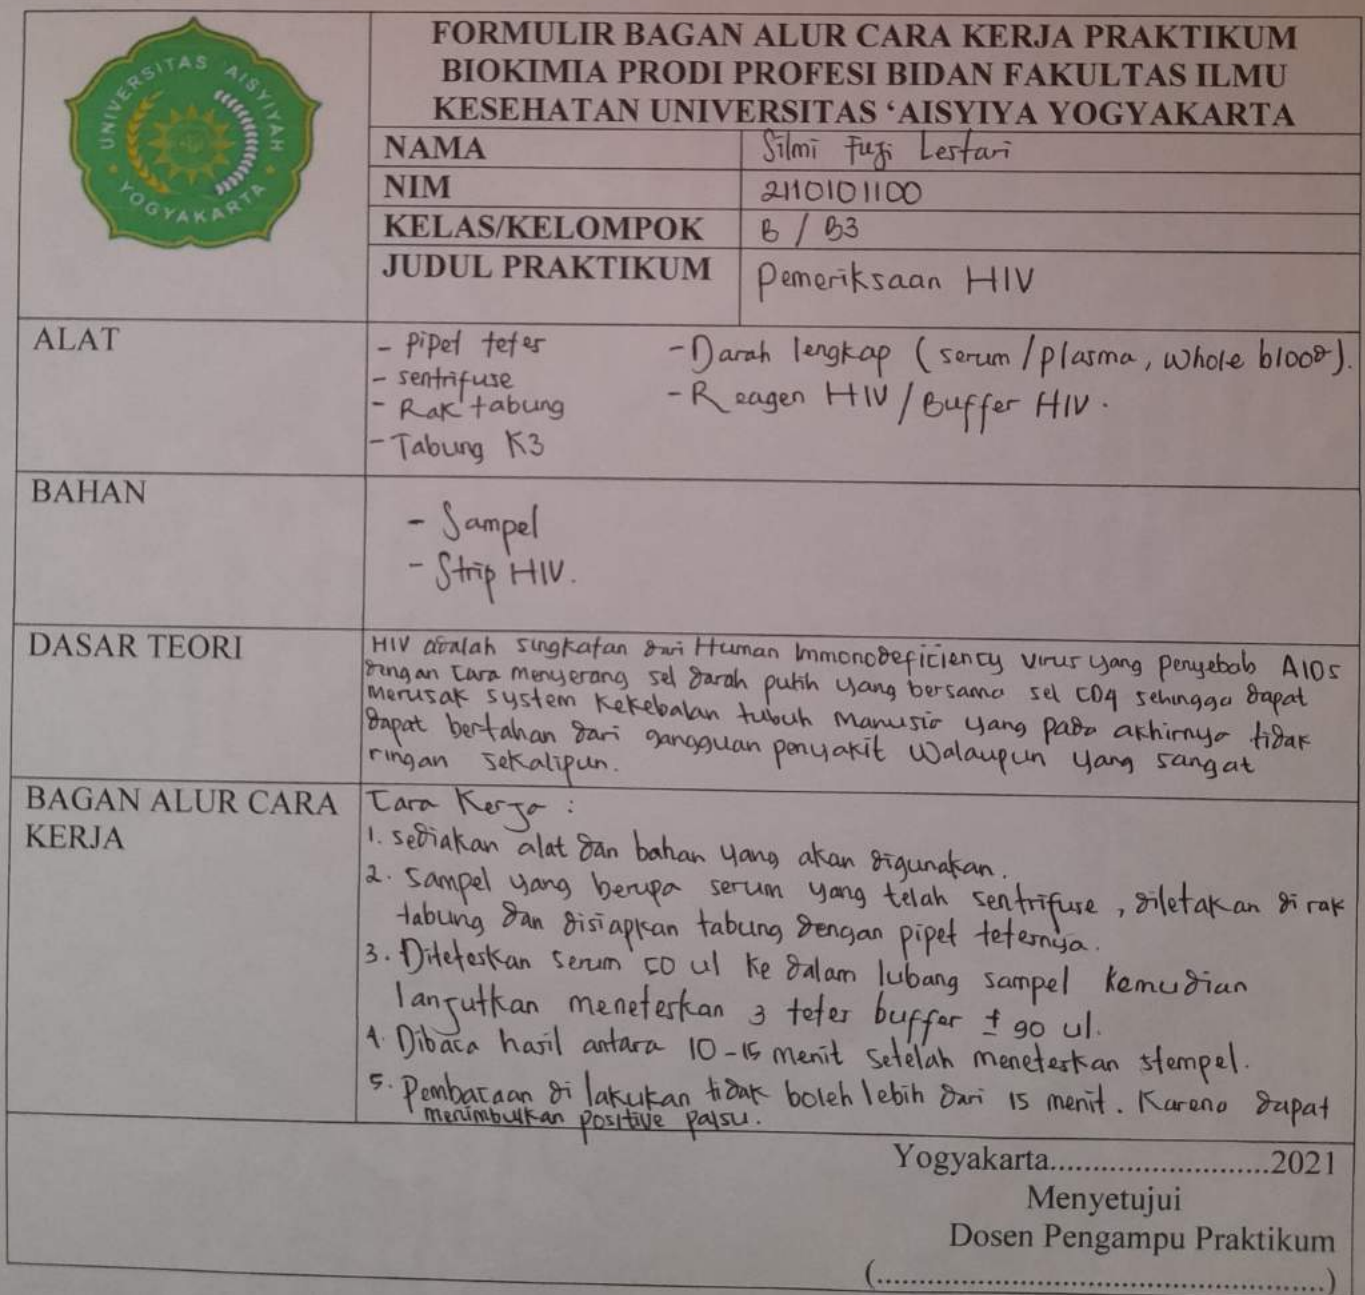 UNIVERSITAS 'AISYIYAH
YOGYAKARTA
FORMULIR BAGAN ALUR CARA KERJA PRAKTIKUM
BIOKIMIA PRODI PROFESI BIDAN FAKULTAS ILMU
KESEHATAN UNIVERSITAS ‘AISYIYA YOGYAKARTA
NAMA Silmi Fuji Lestari
NIM 2110101100
KELAS/KELOMPOK B / B3
JUDUL PRAKTIKUM Pemeriksaan HIV
ALAT
- Pipet tetes
- sentrifuse
- Rak tabung
- Tabung K3
- Darah lengkap (serum / plasma, whole blood).
- Reagen HIV / Buffer HIV.
BAHAN
- Sampel
- Strip HIV.
DASAR TEORI
HIV adalah singkatan dari Human Immonodeficiency virus yang penyebab AIDS
dengan cara menyerang sel darah putih yang bersama sel CD4 sehingga dapat
merusak system kekebalan tubuh manusia yang pada akhirnya tidak
dapat bertahan dari gangguan penyakit walaupun yang sangat
ringan sekalipun.
BAGAN ALUR CARA
KERJA
Cara Kerja :
1. sediakan alat dan bahan yang akan digunakan.
2. Sampel yang berupa serum yang telah sentrifuse, diletakan di rak
tabung dan disiapkan tabung dengan pipet tetesnya.
3. Diteteskan serum 50 ul ke dalam lubang sampel kemudian
lanjutkan meneteskan 3 tetes buffer ± 90 ul.
4. Dibaca hasil antara 10-15 menit setelah meneteskan stempel.
5. Pembacaan di lakukan tidak boleh lebih dari 15 menit. Karena dapat
menimbulkan positive palsu.
Yogyakarta..........................2021
Menyetujui
Dosen Pengampu Praktikum
(.....................................................)